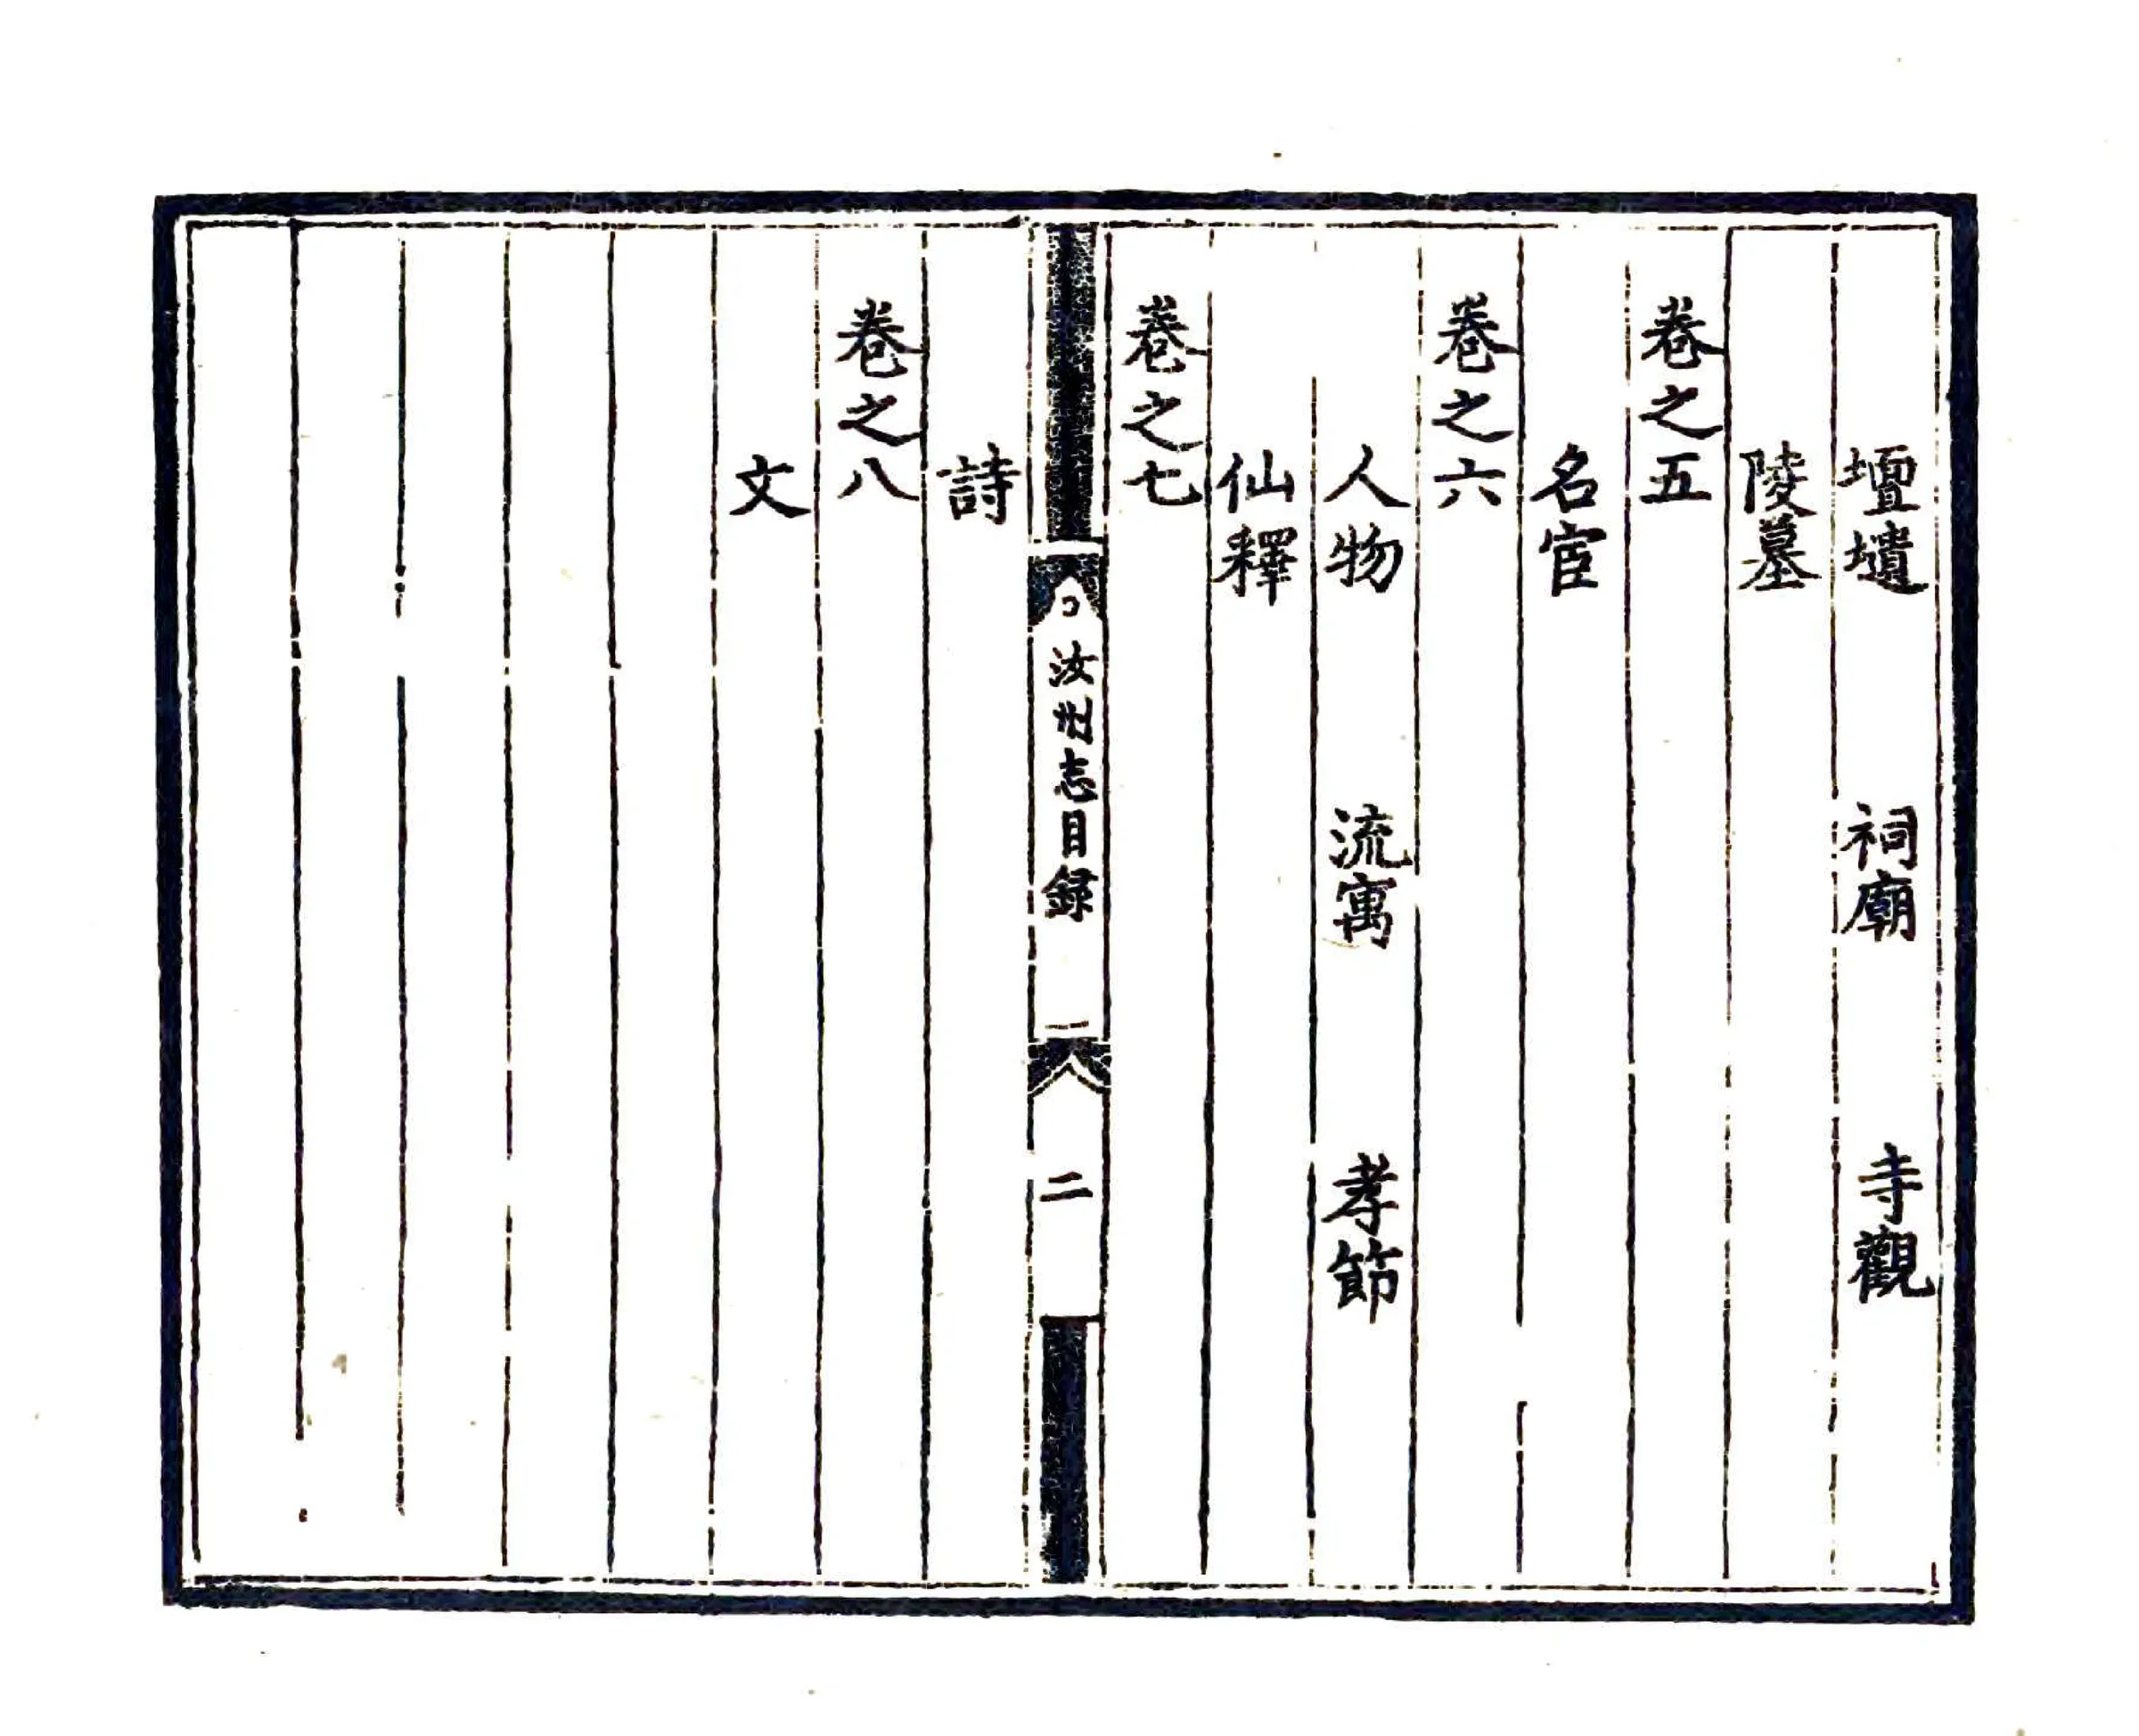 壇壝 祠廟 寺觀
陵墓
卷之五
名宦
卷之六
人物 流寓 孝節
仙釋
卷之七
汝州志目録 二
詩
卷之八
文